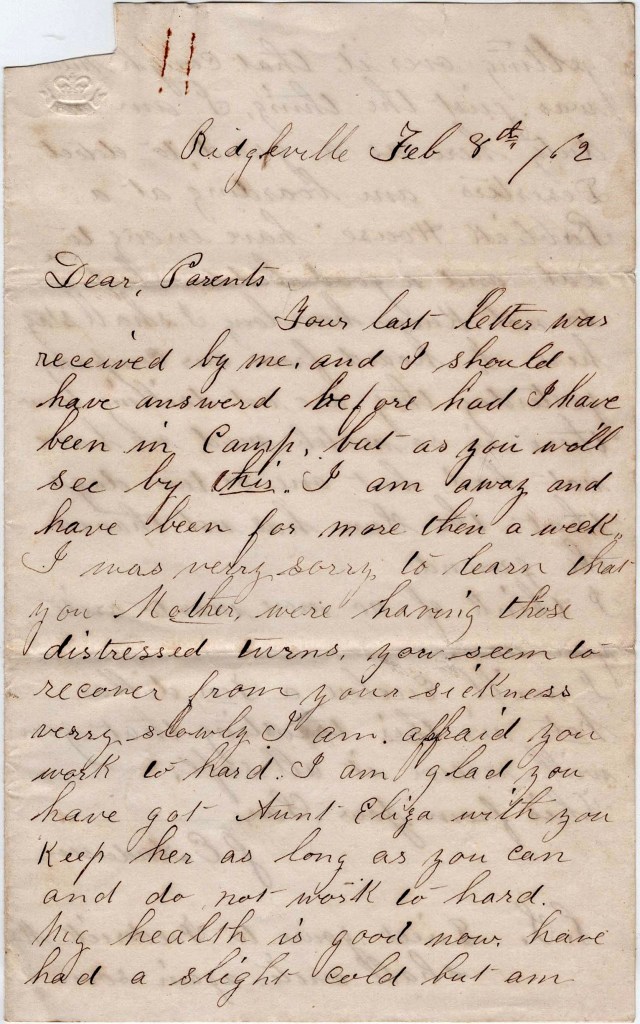 Ridgleville Feb 8th /62
Dear, Parents
Your last letter was
received by me. and I should
have answerd before had I have
been in Camp, but as you will
see by this. I am away and
have been for more then a week,
I was verry sorry to learn that
you Mother, were having those
distressed turns, you seem to
recover from your sickness
verry slowly I am. affraid you
work to hard. I am glad you
have got Aunt Eliza with you
Keep her as long as you can
and do not work to hard.
My health is good now, have
had a slight cold but am